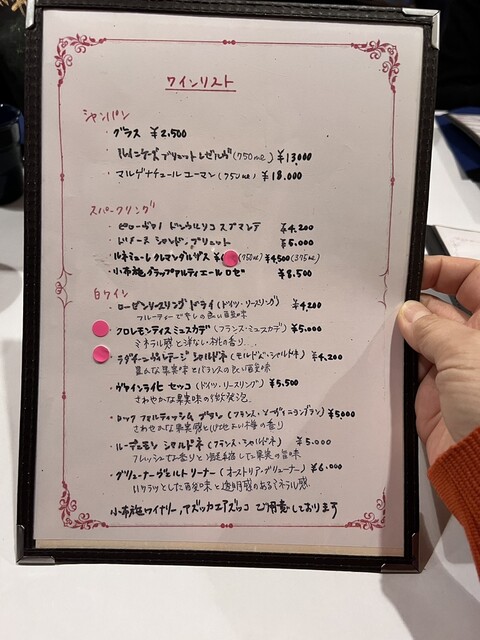 ワインリスト
シャンパン
・グラス ¥2,500
ブリュットレゼルヴ(750ml) ¥13,000
・マルゲナチュールユーマン(750ml) ¥18,000
スパークリング
¥4,200
・ドメーヌ シャンドン ブリュット ¥5,000
(750ml) ¥4,500 (375ml)
・小布施 ロゼ ¥8,500
白ワイン
・ローゼンリースリング ドライ (ドイツ・リースリング) ¥4,200
フルーティーで
・クロレモンティス ミュスカデ (フランス・ミュスカデ) ¥5,000
ミネラル感と洋なし、桃の香り…
・ラダチーニヴィンテージ シャルドネ (モルドバ・シャルドネ) ¥4,200
豊んな果実味とバランスの良い酸味
・ヴァインライヒ セッコ (ドイツ・リースリング) ¥5,500
さわやかな果実味の微発泡
・ロック フォルティッシム ブラン (フランス・ソーヴィニヨンブラン) ¥5,000
さわやかな果実感と心地よい樽の香り
・ルーデュモン シャルドネ (フランス・シャルドネ) ¥5,000
フレッシュな香りと凝縮した果実の旨味
・グリューナーヴェルトリーナー (オーストリア・グリューナー) ¥6,000
キリッとした酸味と透明感のあるミネラル感
小布施ワイナリー、アズッカエアズッコ ご用意しております